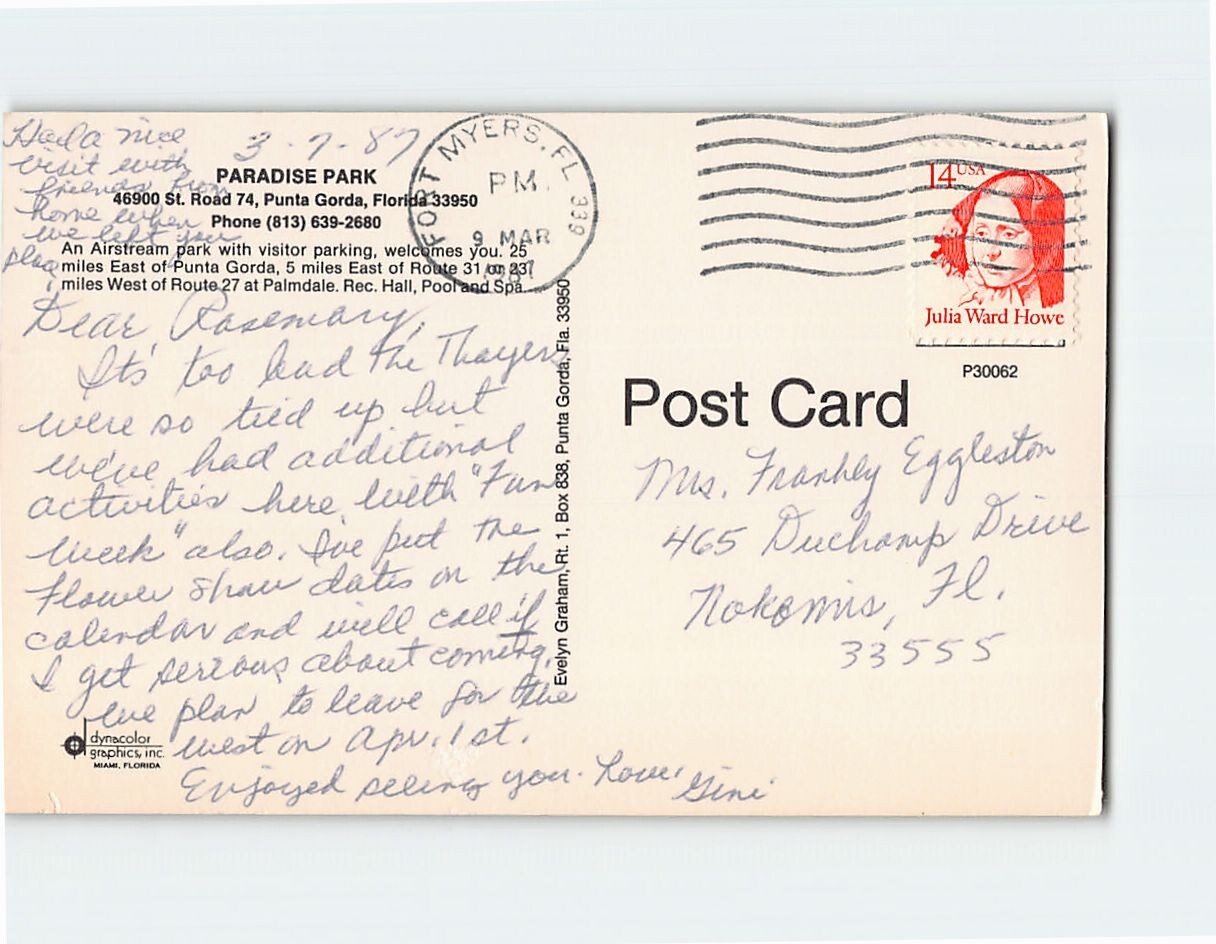 Had a nice
visit with
friends from
home when
we left your
place
3-7-87
PARADISE PARK
46900 St. Road 74, Punta Gorda, Florida 33950
Phone (813) 639-2680
An Airstream park with visitor parking, welcomes you. 25
miles East of Punta Gorda, 5 miles East of Route 31 or 23
miles West of Route 27 at Palmdale. Rec. Hall, Pool and Spa.
Dear Rosemary,
It's too bad the Thayers
were so tied up but
we've had additional
activities here with "Fun
Week" also. I've put the
flower show dates on the
calendar and will call if
I get serious about coming.
We plan to leave for the
west on Apr. 1st.
Enjoyed seeing you. Love, Gini
dynacolor
graphics, inc.
MIAMI, FLORIDA
Evelyn Graham, Rt. 1, Box 838, Punta Gorda, Fla. 33950
FORT MYERS, FL 339
PM
9 MAR
1987
14 USA
Julia Ward Howe
P30062
Post Card
Mrs. Frankly Eggleston
465 Duchamp Drive
Nokomis, Fl.
33555